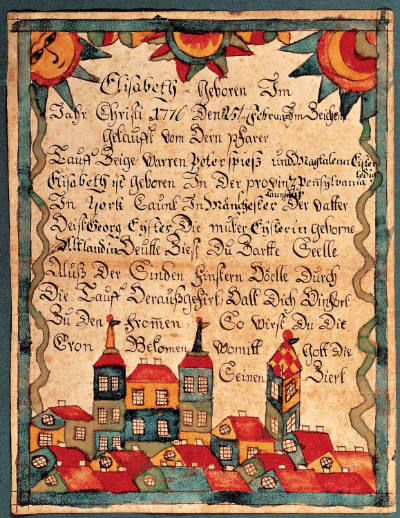 Elisabeth - Geboren Im
Jahr Christi 1776 Den 25t Februar Im Zeichen
Getaufft vom Dern pfarer
Tauff Zeige Warren Peter Spieß und Magtalena Eyster
Ledig
Elisabeth ist Geboren In Der provintz Pensylvania
Taunschip
In York Caunt In Mänchester Der vatter
Heist Georg Eyster Die muter Eysterin geborne
Altlandin Heutte Bist Du Seelle
Auß Der Sinden finstern Hölle Durch
Die Tauff Heraußgefirt Halt Dich
Zu Den fromen So wirst Du Die
Cron Bekomen Womitt Gott Die
Seinen Ziert